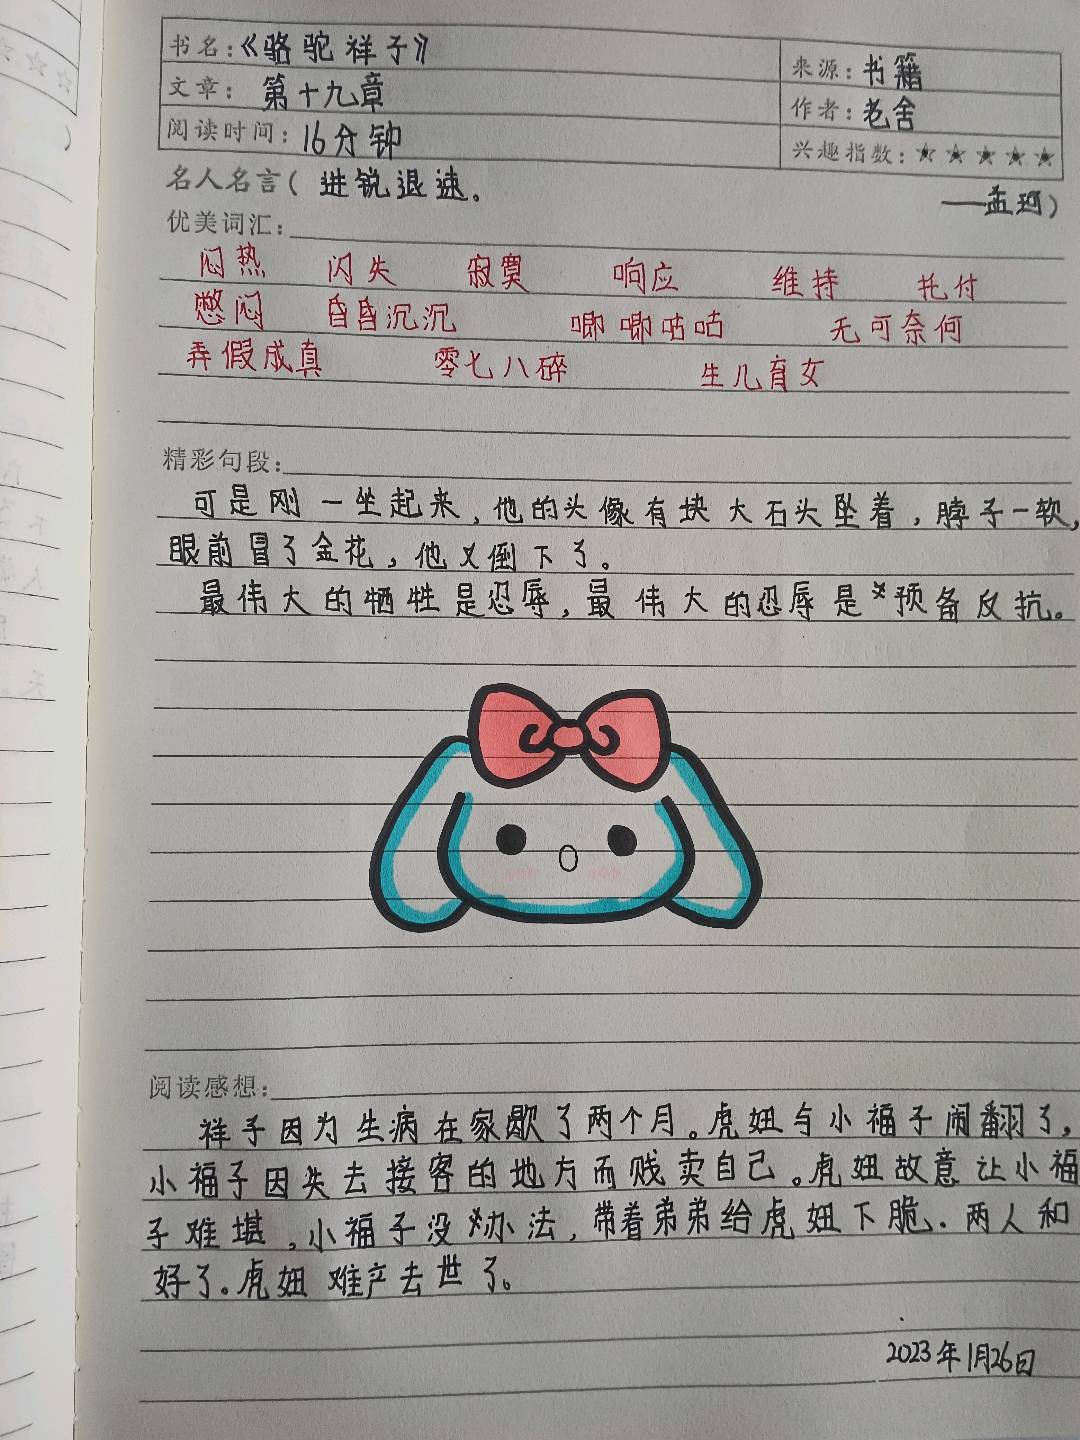 书名:《骆驼祥子》
来源:书籍
文章: 第十九章
作者:老舍
阅读时间:16分钟
兴趣指数:★★★★★
名人名言( 进锐退速。
——孟珂)
优美词汇:
闷热 闪失 寂寞 响应 维持 托付
憋闷 昏昏沉沉 唧唧咕咕 无可奈何
弄假成真 零七八碎 生儿育女
精彩句段:
可是刚一坐起来,他的头像有块大石头坠着,脖子一软,
眼前冒了金花,他又倒下了。
最伟大的牺牲是忍辱,最伟大的忍辱是预备反抗。
阅读感想:
祥子因为生病在家歇了两个月。虎妞与小福子闹翻了,
小福子因失去接客的地方而贱卖自己。虎妞故意让小福
子难堪,小福子没办法,带着弟弟给虎妞下脆.两人和
好了。虎妞难产去世了。
2023年1月26日